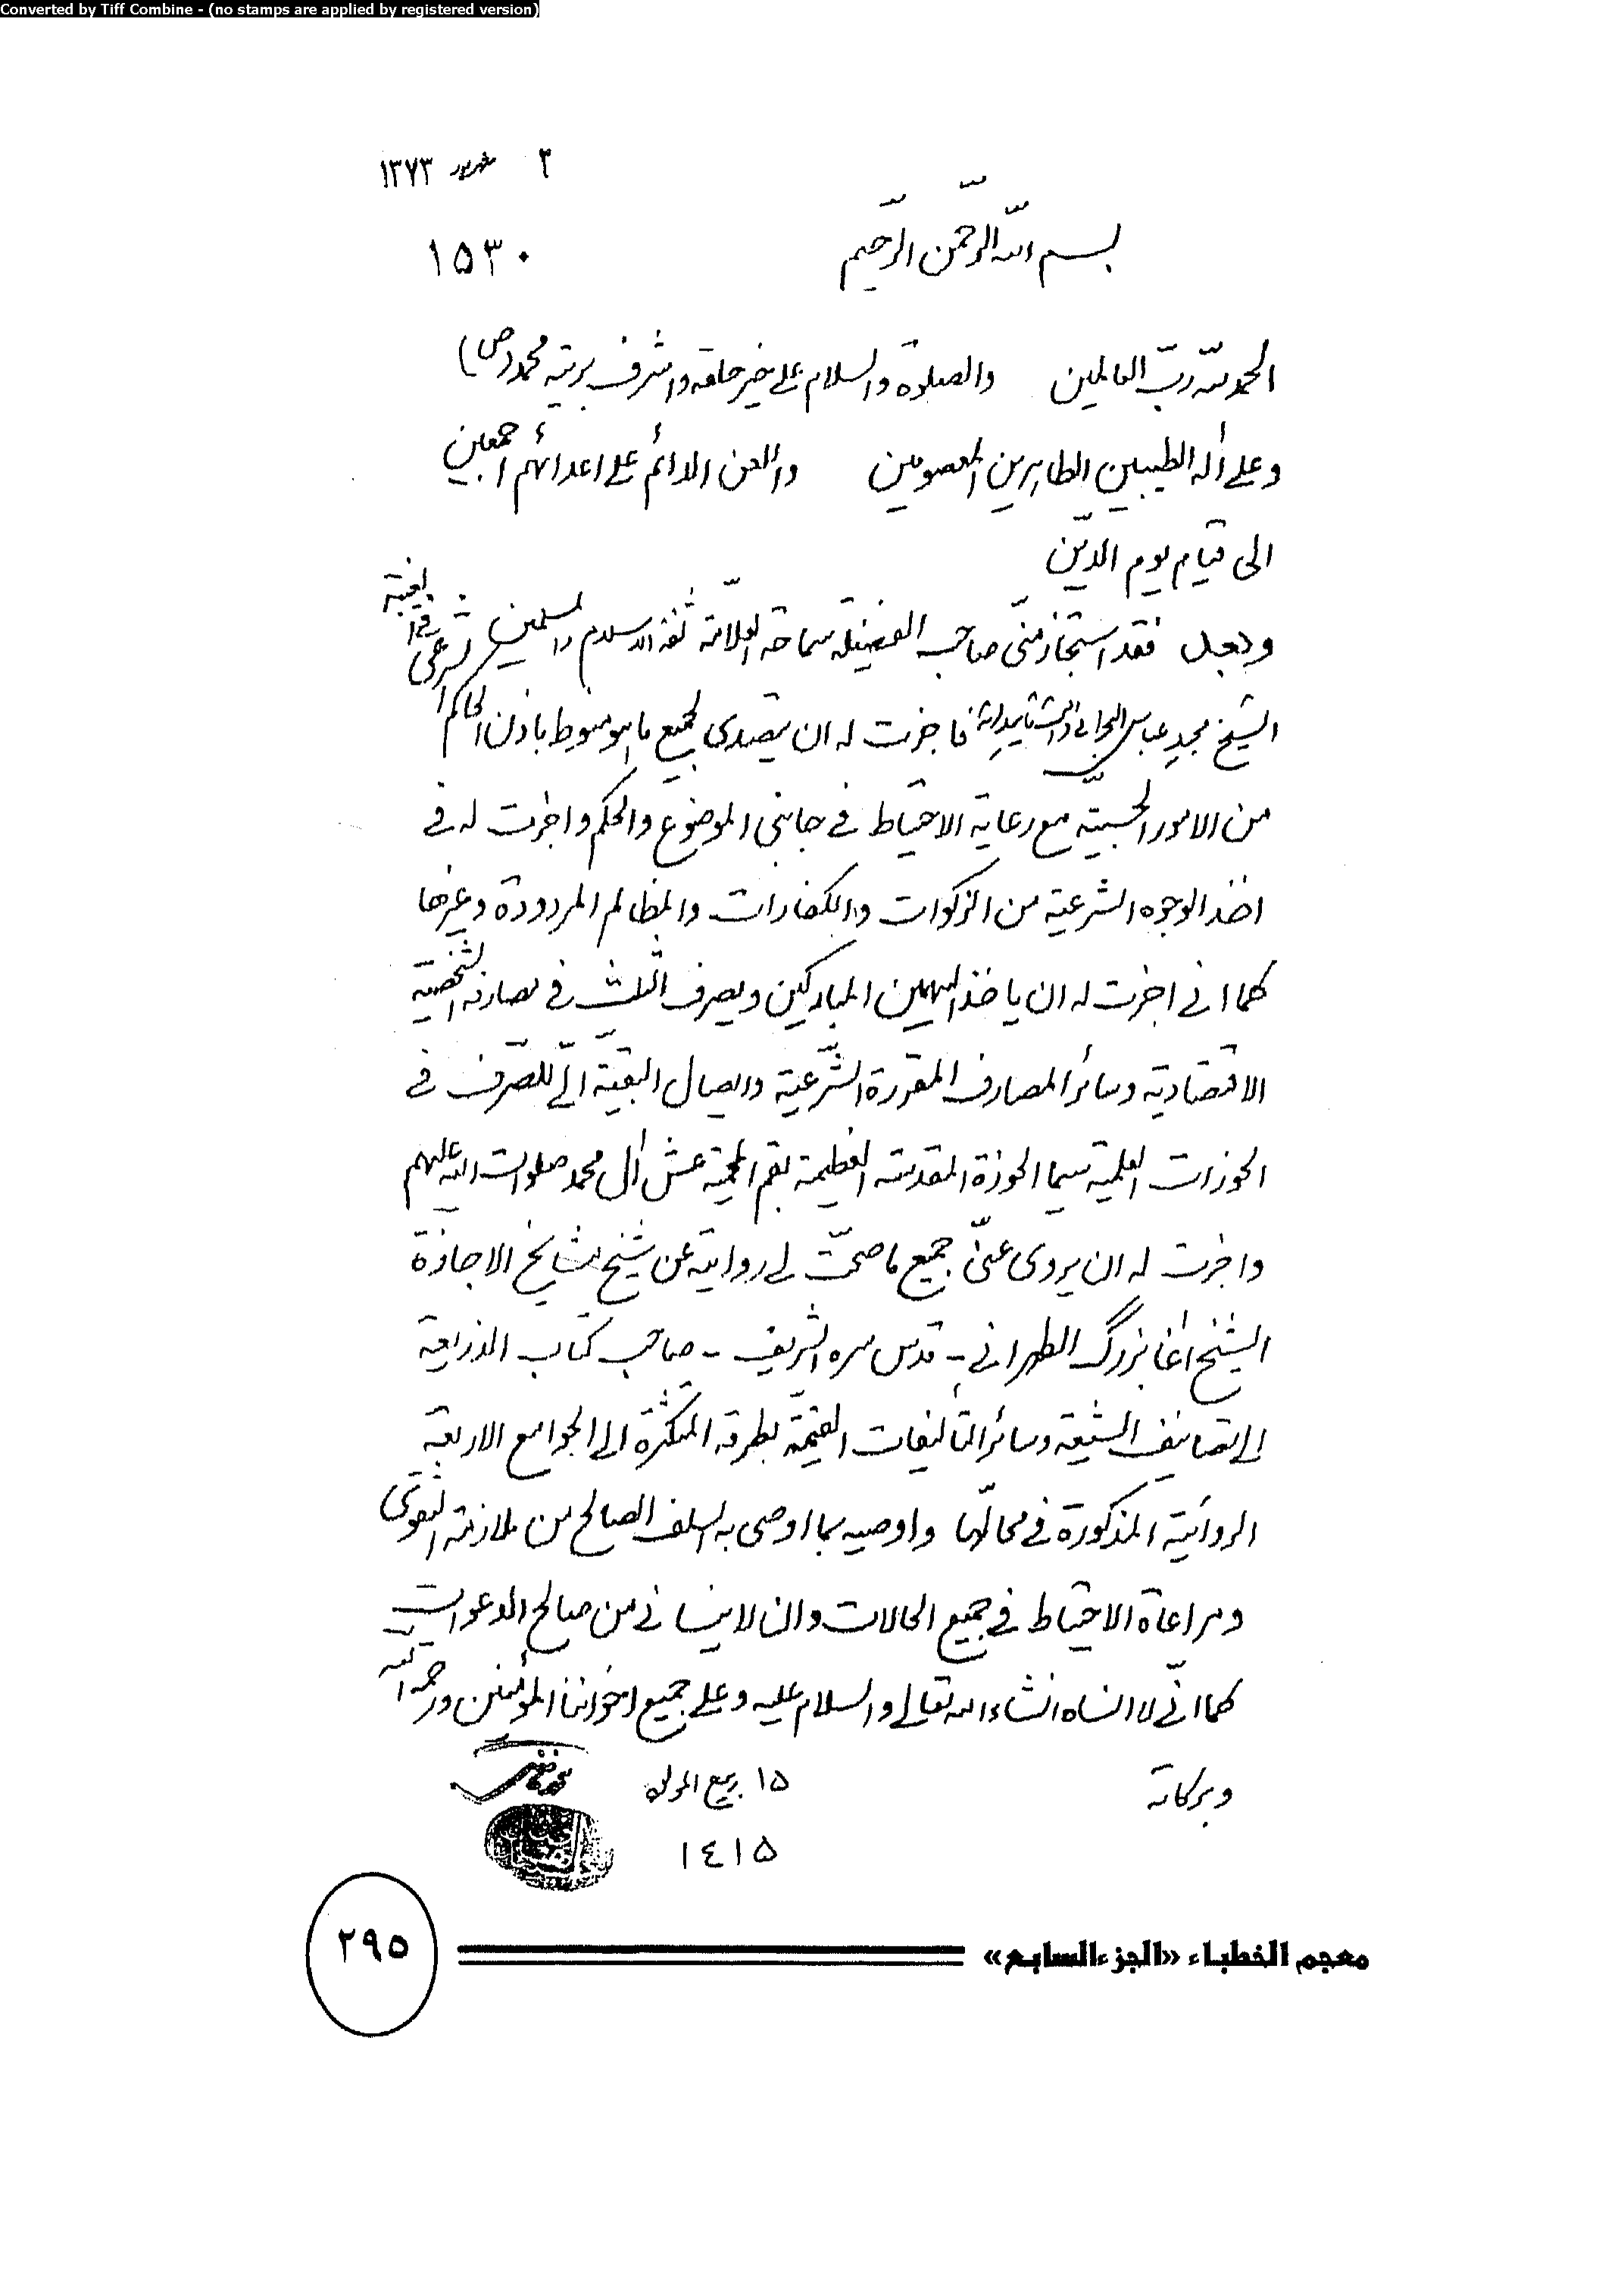 Converted by Tiff Combine - (no stamps are applied by registered version)
٣ شهريور ١٣٧٣
بسم الله الرّحمن الرّحيم
١٥٣٠
الحمد لله ربّ العالمين والصلوة والسلام على خير خلقه واشرف بريته محمد (ص)
وعلى آله الطيبين الطاهرين المعصومين واللعن الدائم على اعدائهم اجمعين
الى قيام يوم الدّين
وبعد فقد استجاز منّي صاحب الفضيلة سماحة العلّامة ثقة الاسلام والمسلمين
الشيخ مجيد عباس فاجزت له ان يتصدى لجميع ما هو منوط باذن الحاكم الشرعي
من الامور الحسبيّة مع رعاية الاحتياط في جانبي الموضوع والحكم واجزت له في
اخذ الوجوه الشرعية من الزكوات والكفارات والمظالم المردودة وغيرها
كما اني اجزت له ان ياخذ السهمين المباركين ويصرف الثلث في مصارفه الشخصية
الاقتصادية وسائر المصارف المقررة الشّرعية وايصال البقيّة اليّ للصّرف في
الحوزات العلمية سيما الحوزة المقدسة العظيمة بقم المحمية عش آل محمد صلوات الله عليهم
واجزت له ان يروى عنّي جميع ما صحّت لي روايته عن شيخ مشايخ الاجازة
الشيخ آغا بزرگ الطهراني - قدس سره الشريف - صاحب كتاب الذريعة
الى تصانيف الشيعة وسائر التأليفات القيّمة بطرقه المتكثرة الى الجوامع الاربعة
الروائية المذكورة في محالّها واوصيه بما اوصى به السلف الصالح من ملازمة التقوى
ومراعاة الاحتياط في جميع الحالات وان لا ينساني من صالح الدعوات
كما انّي لا انساه انشاء الله تعالى والسلام عليه وعلى جميع اخواننا المؤمنين ورحمة الله
وبركاته
١٥ ربيع المولود
١٤١٥
معجم الخطباء «الجزء السابع»
٢٩٥